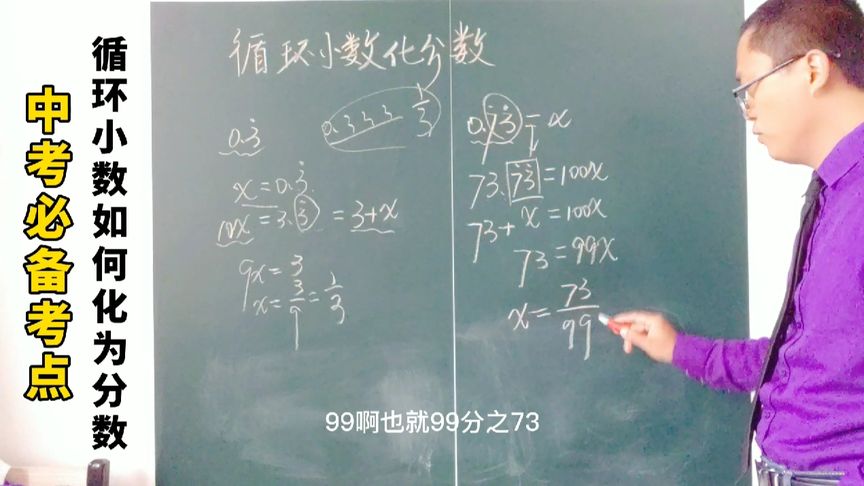 中考必备考点
循环小数如何化为分数
循环小数化分数
0.3̇
0.333 1/3
x=0.3̇
10x=3.3̇=3+x
9x=3
x=3/9=1/3
0.7̇3̇=x
73.7̇3̇=100x
73+x=100x
73=99x
x=73/99
99啊也就99分之73